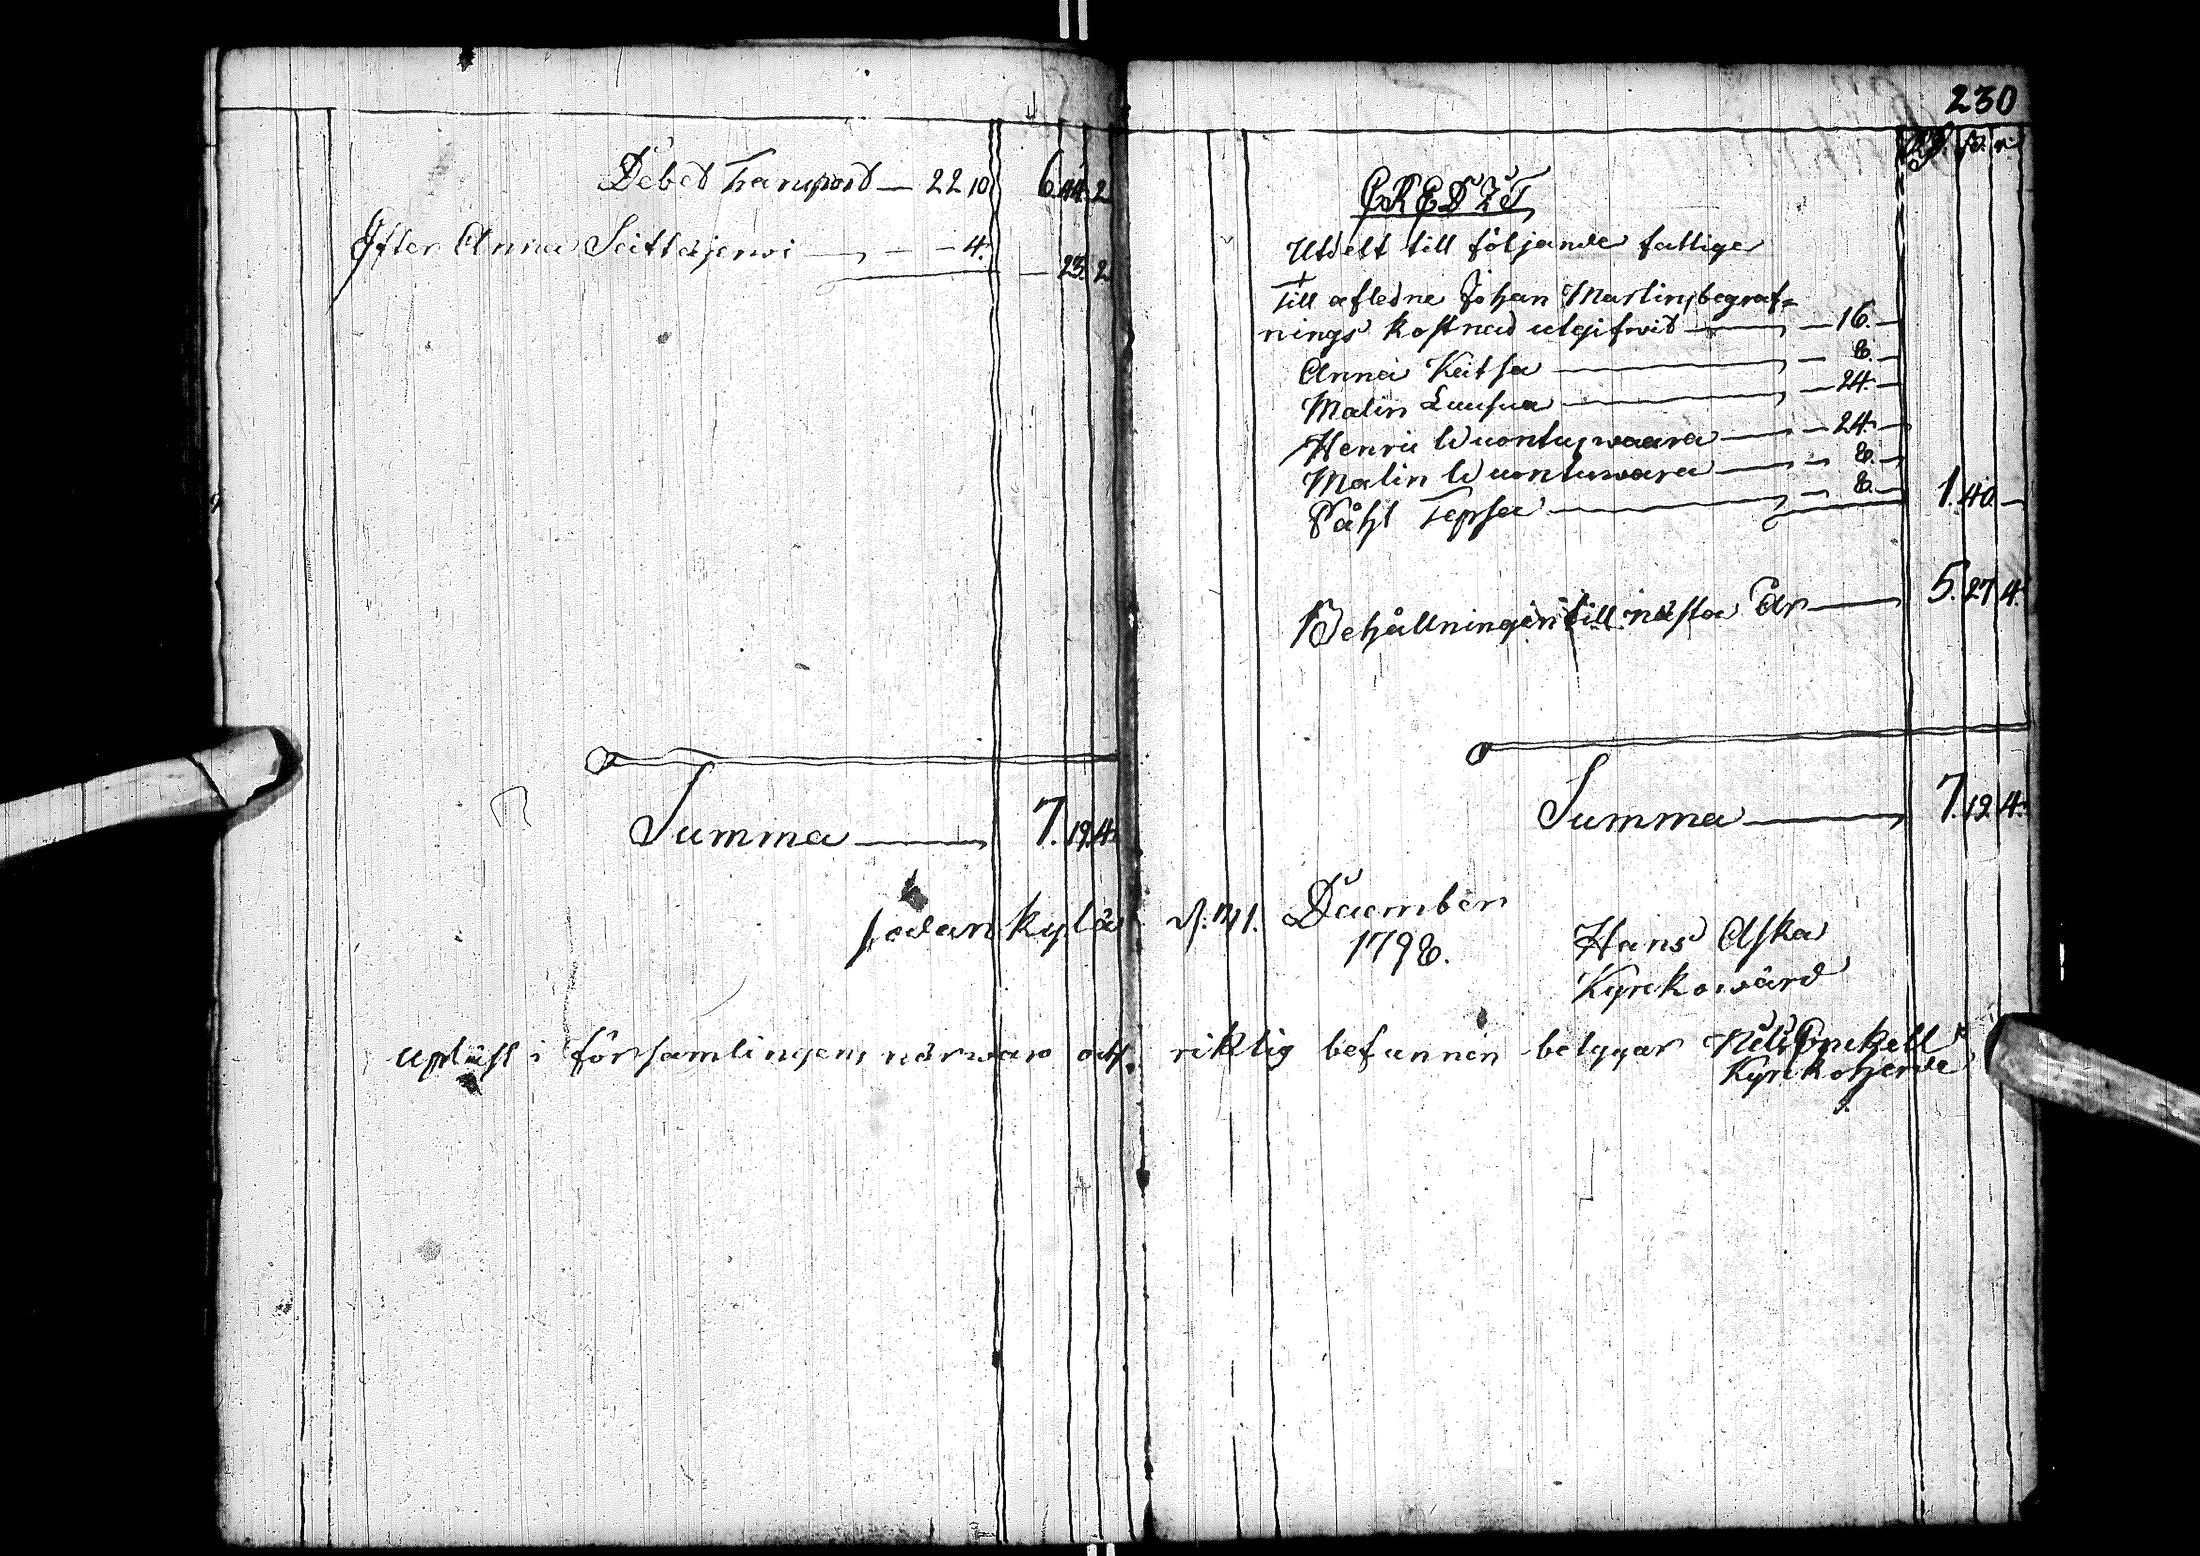 Debet Transport — 22 10 6. 44. 2
Efter Anna Seittajerwi — 4. — 23. 2
Summa — 7. 19. 4.
230
CREDIT
Utdelt till följande fattige
Till afledne Johan Martins begraf=
nings kostnad utgifwit — 16. —
Anna Keitsa — 8. —
Malin Luusua — 24. —
Henric Wuontuswaara — 24. —
Malin Wuontuwara — 8. —
Påhl Tepsa — 8. — 1. 40. —
Behållningen till nästa År — 5. 27. 4.
Summa — 7. 19. 4.
Sodankylä d. 31. December
1798.
Hans Aska
Kyrkowärd
upläst i församlingens närwaro och riktig befunnen betygar Nils Enckell
Kyrkoherde